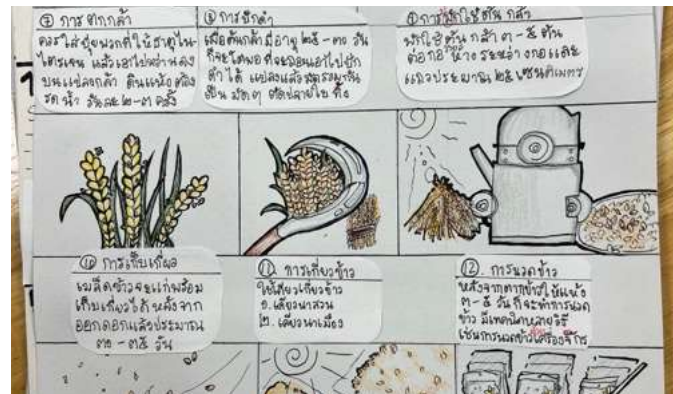 ⑦ การตกกล้า
ควรใส่ปุ๋ยพวกที่ให้ธาตุไน-
ไตรเจน แล้วเอาไปหว่านลง
บนแปลงกล้า ดินแห้งต้อง
รดน้ำ วันละ ๒-๓ ครั้ง
⑧ การปักดำ
เมื่อต้นกล้ามีอายุ ๒๕ - ๓๐ วัน
ก็จะโตพอที่จะถอนเอาไปปัก
ดำได้
เป็น มัดๆ ตัดปลายใบ ทิ้ง
⑨ การปักใช้ต้น กล้า
ปักใช้ต้น กล้า ๓ - ๕ ต้น
ต่อกอ ห่าง ระหว่าง กอและ
แถวประมาณ ๒๕ เซนติเมตร
⑩ การเก็บเกี่ยว
เมล็ดข้าวจะแก่พร้อม
เก็บเกี่ยวได้ หลังจาก
ออกดอกแล้วประมาณ
๓๐ - ๓๕ วัน
⑪. การเกี่ยวข้าว
ใช้เคียวเกี่ยวข้าว
๑. เคียวนาสวน
๒. เคียวนาเมือง
⑫. การนวดข้าว
หลังจากตากข้าวให้แห้ง
๓ - ๕ วัน ก็จะทำการนวด
ข้าว มีเทคนิคหลายวิธี
เช่นการนวดข้าวด้วยเครื่องจักร